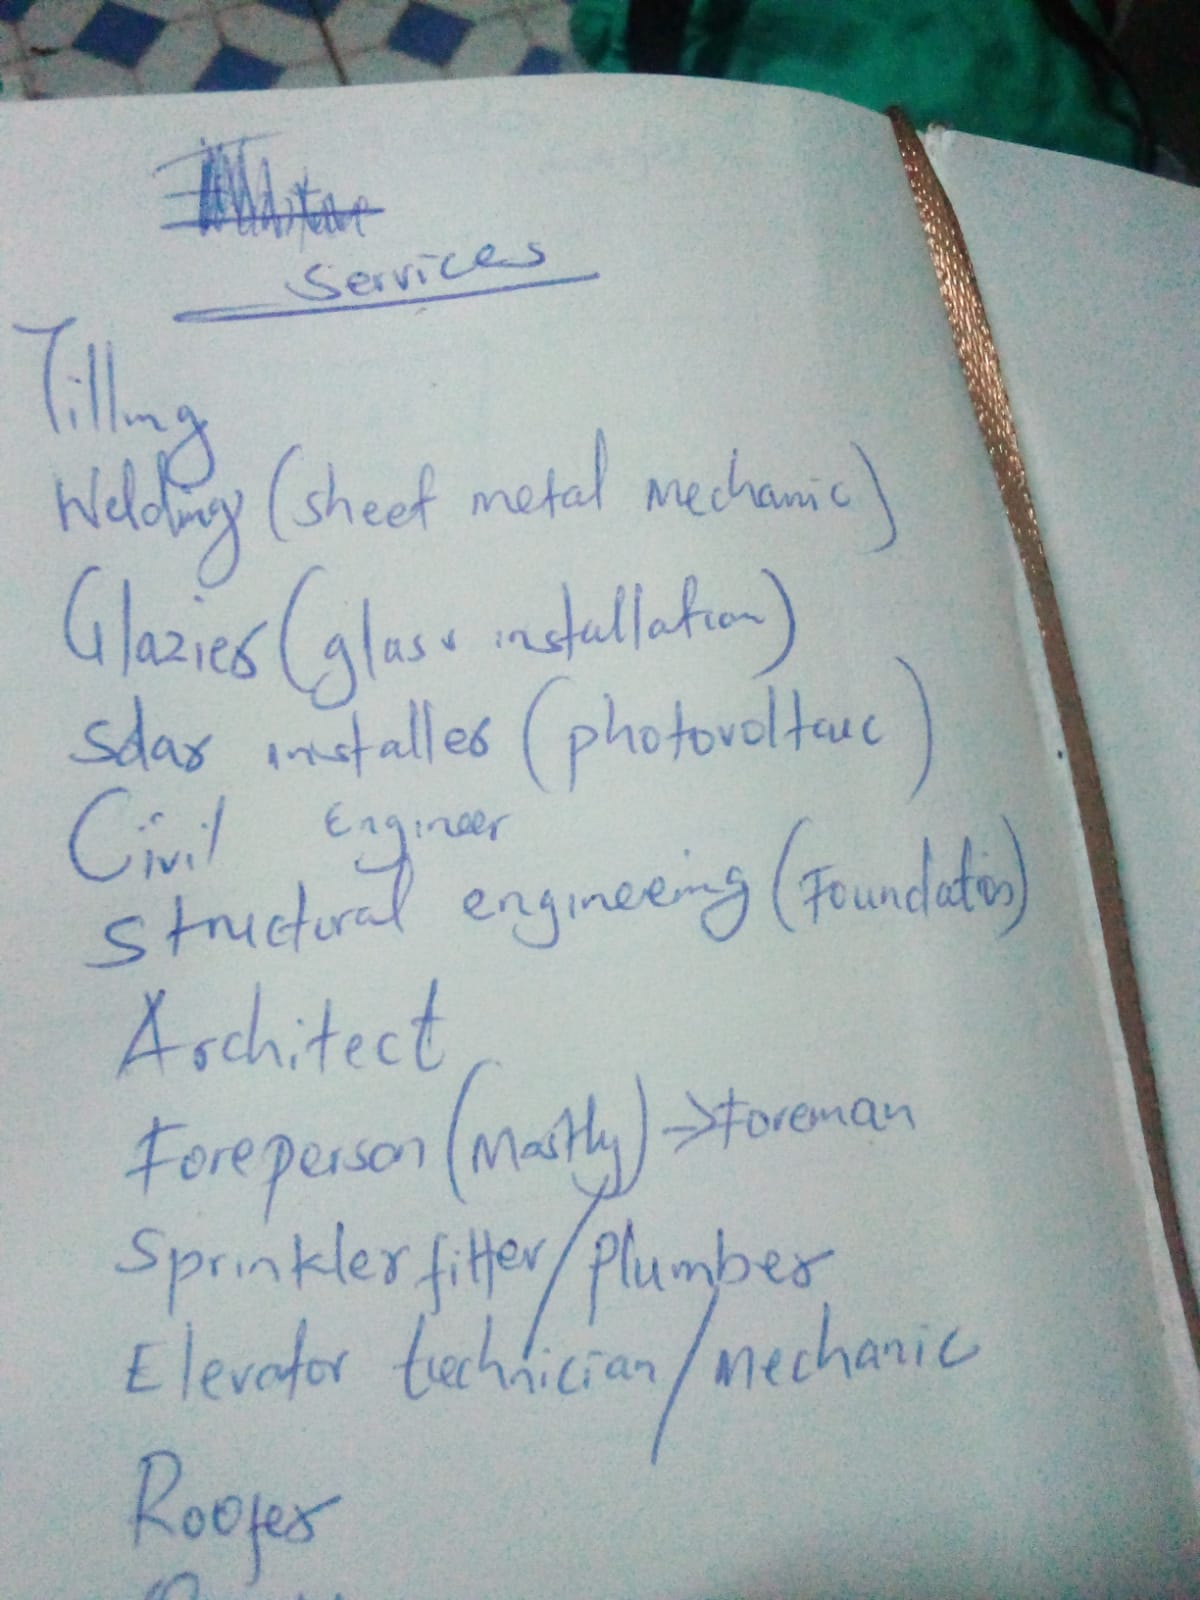 Services
Tilling
Welding (sheet metal mechanic)
Glazier (glass installation)
Solar installer (photovoltaic)
Civil Engineer
Structural engineering (Foundation)
Architect
Foreperson (Mostly) → Foreman
Sprinkler fitter/Plumber
Elevator technician/mechanic
Roofer